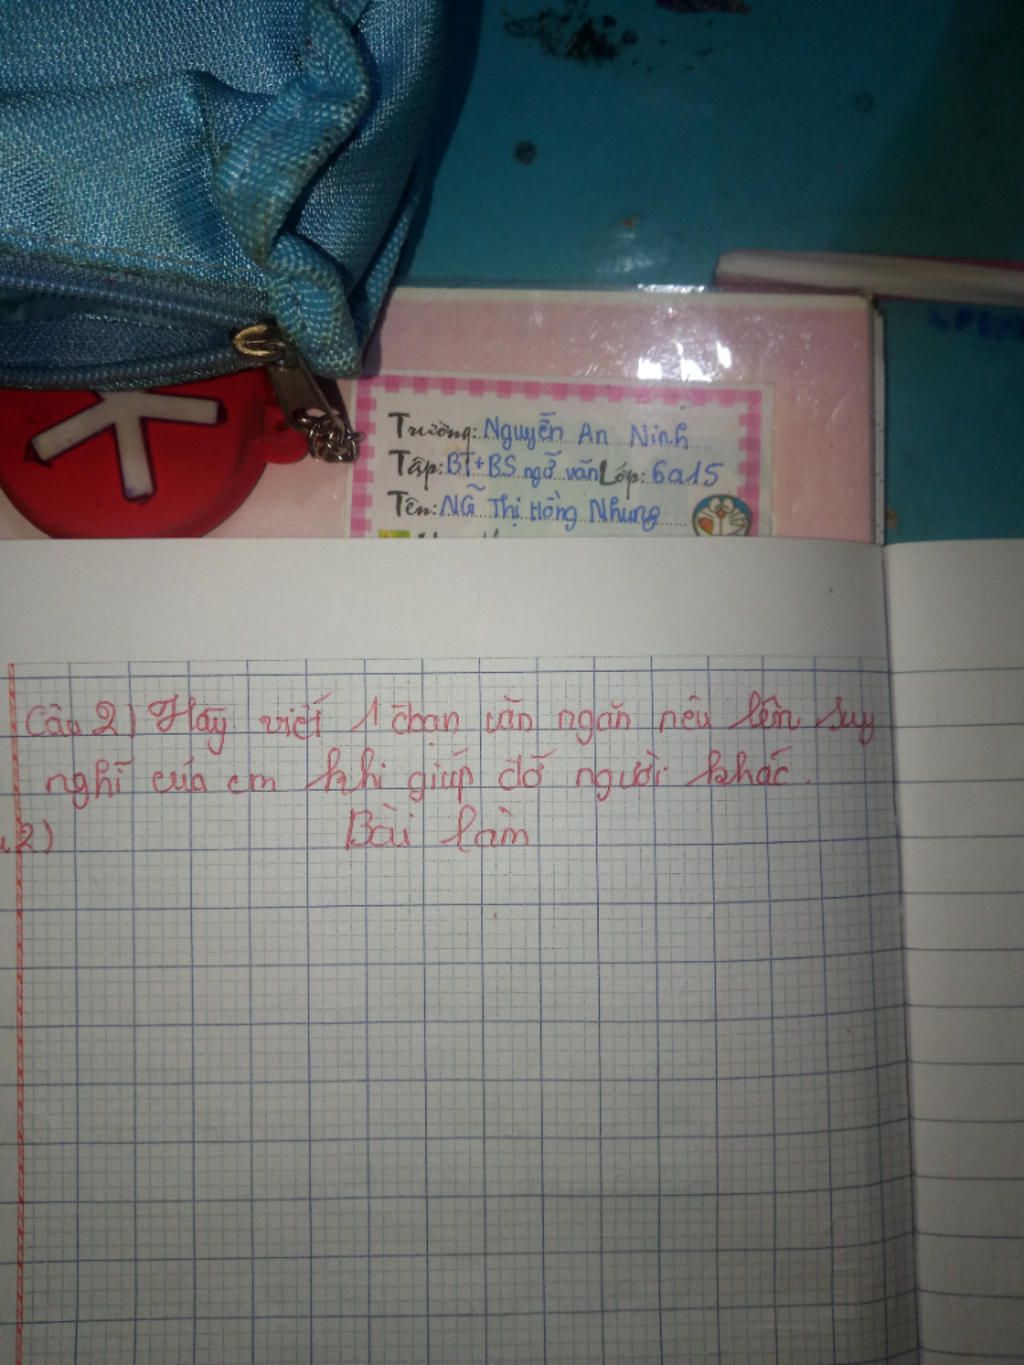 Trường: Nguyễn An Ninh
Tập: BT+BS ngữ văn Lớp: 6a15
Tên: NG Thị Hồng Nhung
Câu 2) Hãy viết 1 đoạn văn ngắn nêu lên suy
nghĩ của em khi giúp đỡ người khác.
2) Bài làm